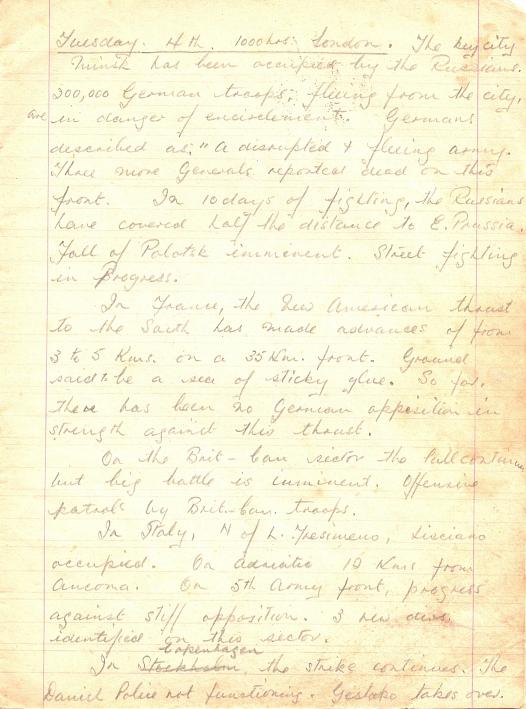 Tuesday. 4th. 1000hrs. London. The key city
Minsk has been occupied by the Russians.
300,000 German troops, fleeing from the city,
are in danger of encirclement. Germans
described as, "A disrupted & fleeing army.
Three more Generals reported dead on this
front. In 10 days of fighting, the Russians
have covered half the distance to E. Prussia.
Fall of Polotsk imminent. Street fighting
in Progress.
In France, the new American thrust
to the South has made advances of from
3 to 5 Kms. on a 35 Km. front. Ground
said to be a sea of sticky glue. So far,
there has been no German opposition in
strength against this thrust.
On the Brit-Can sector the lull continues
but big battle is imminent. Offensive
patrols by Brit-Can. troops.
In Italy, N of L. Tresimeno, Lisciano
occupied. On Adriatic 19 Kms from
Ancona. On 5th Army front, progress
against stiff opposition. 3 new divs.
identified on this sector.
Copenhagen
In Stockholm the strike continues. The
Danish Police not functioning. Gestapo takes over.